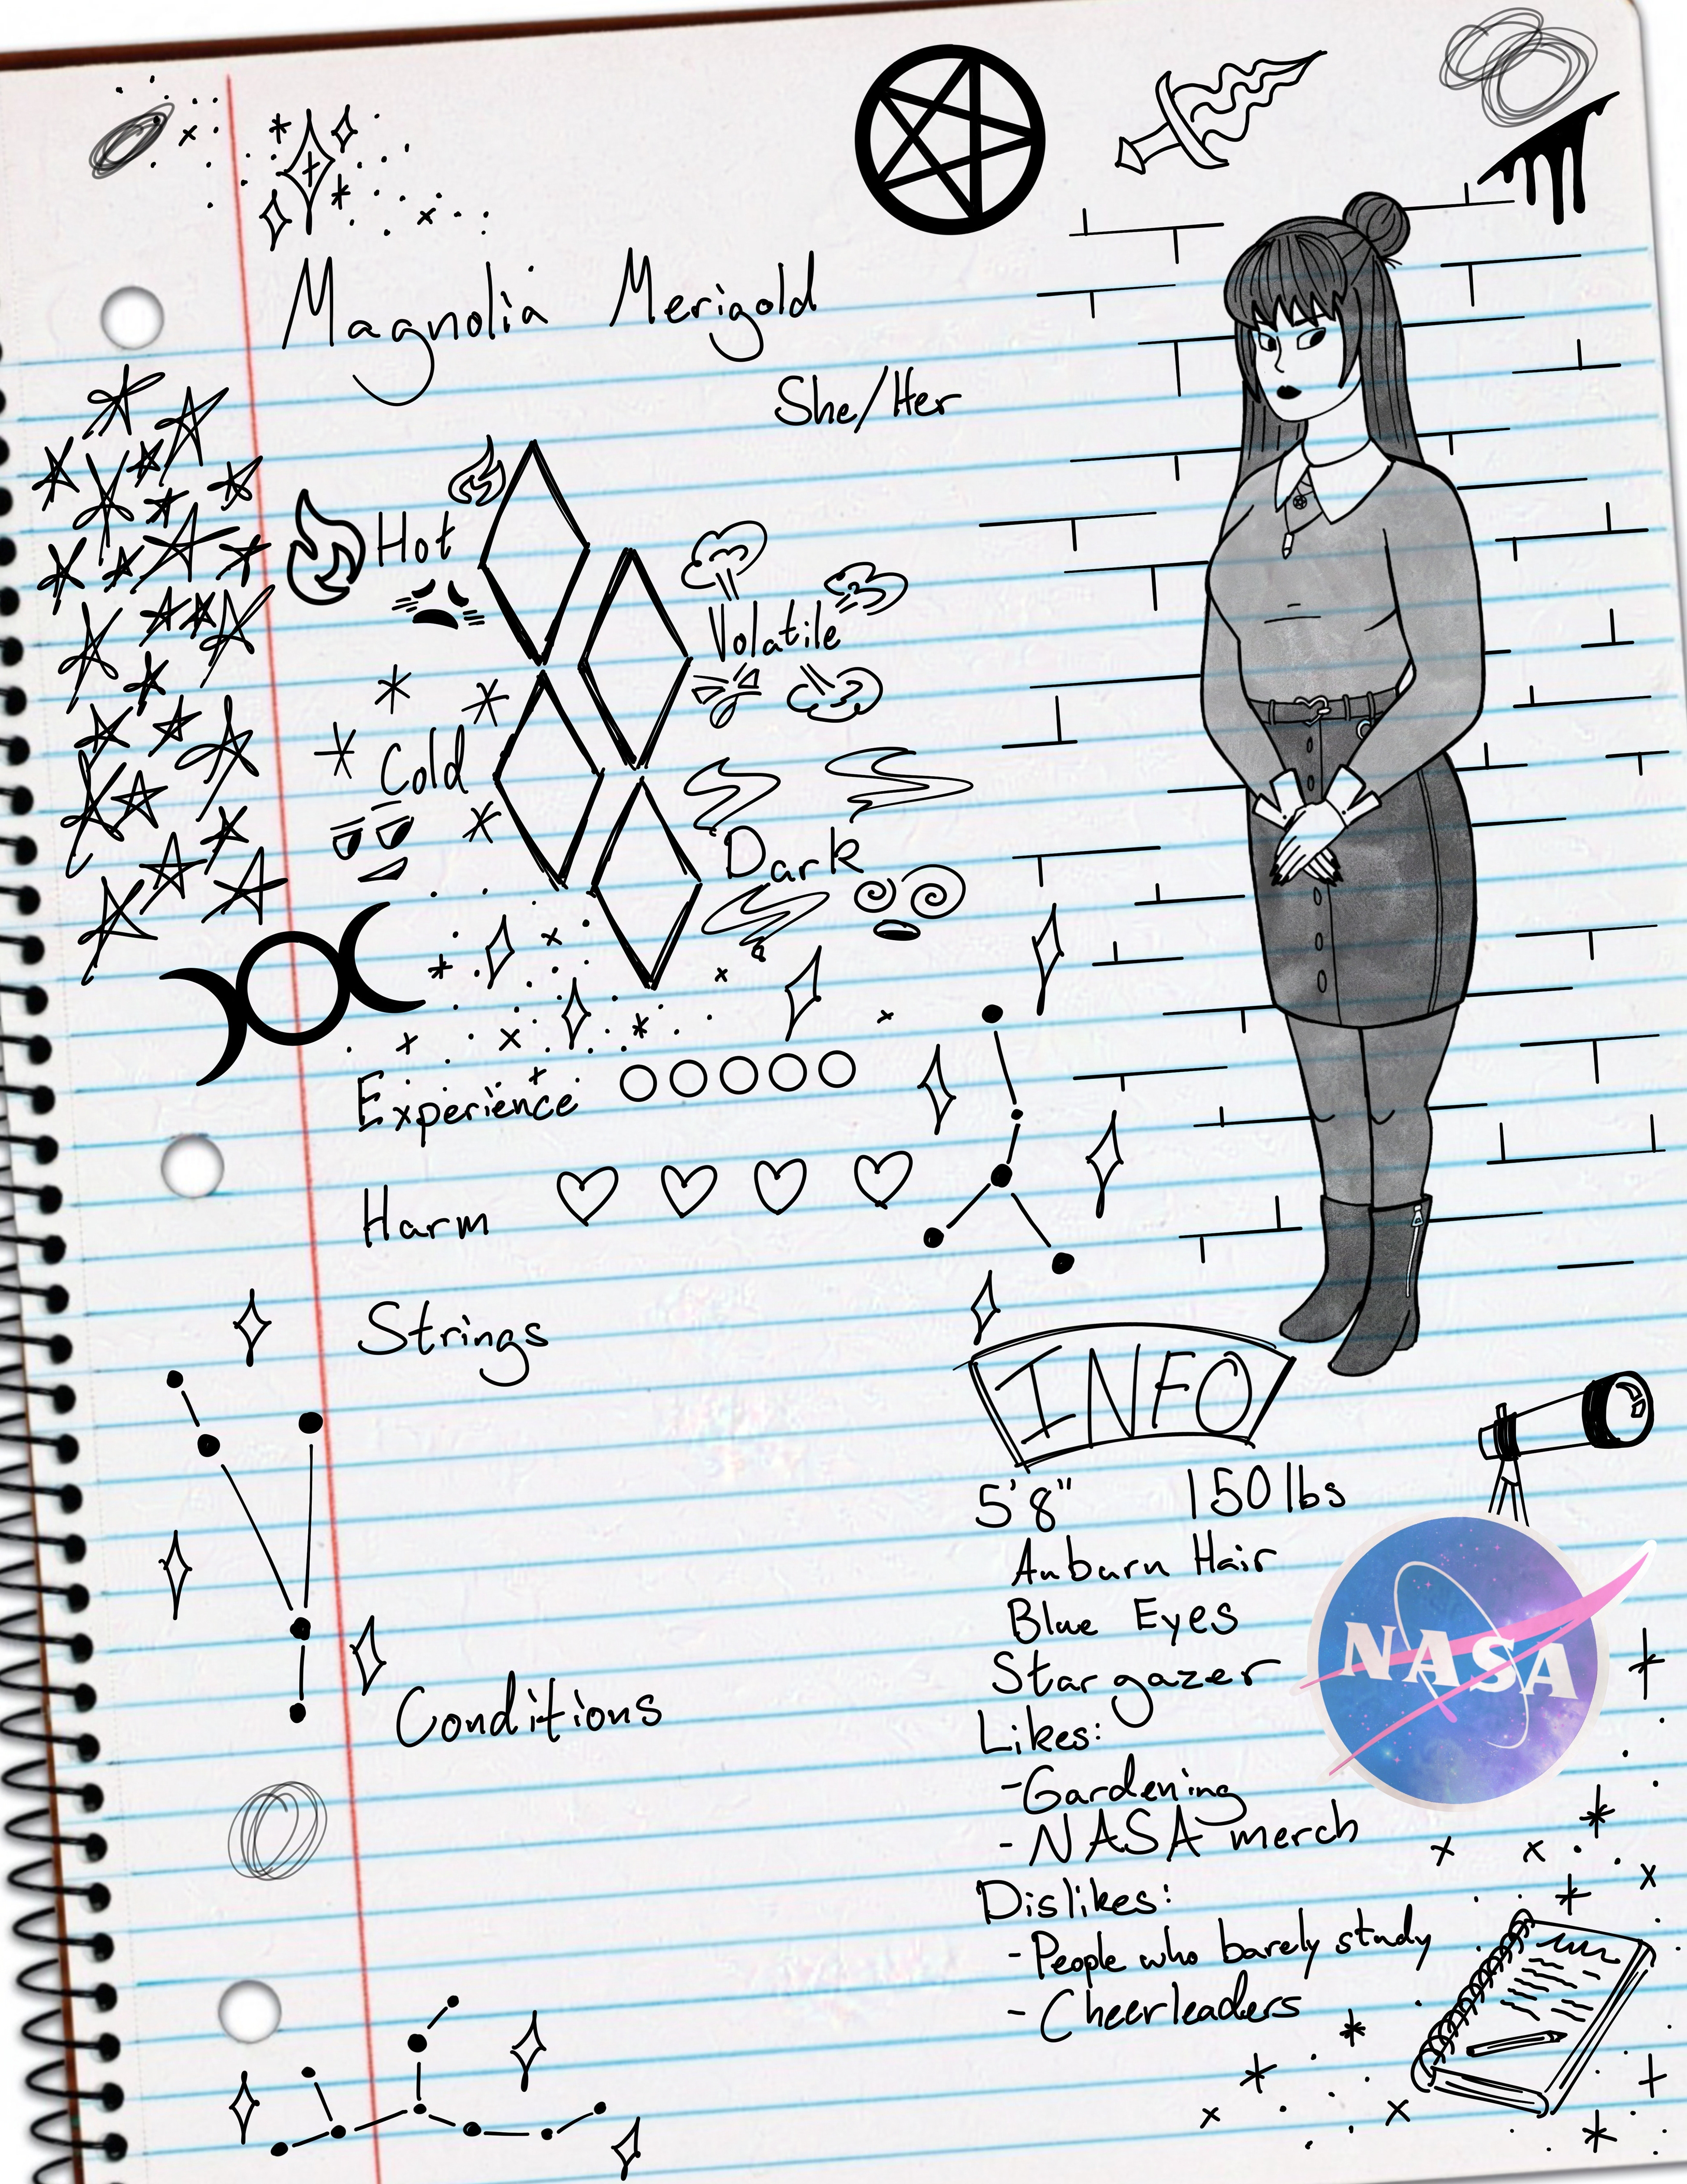 Magnolia Merigold
She/Her
Hot
Volatile
Cold
Dark
Experience
Harm
Strings
Conditions
INFO
5'8" 150 lbs
Auburn Hair
Blue Eyes
Star gazer
NASA
Likes:
-Gardening
- NASA merch
Dislikes:
- People who barely study
- Cheerleaders